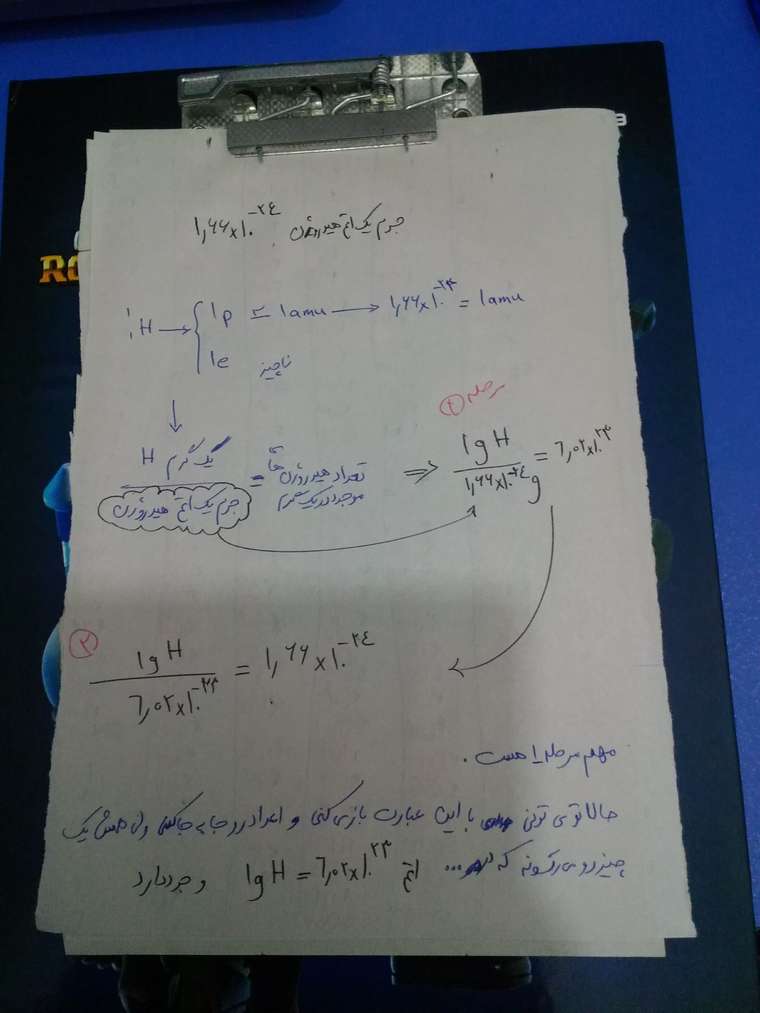 جرم یک اتم هیدروژن ۱٫۶۶×۱۰^-۲۴
¹₁H → { 1p ≃ 1amu → ۱٫۶۶×۱۰^-۲۴ = 1amu
1e ناچیز
مرحله ①
یک گرم H / جرم یک اتم هیدروژن = تعداد هیدروژن های موجود در یک گرم ⇒ 1g H / ۱٫۶۶×۱۰^-۲۴ g = ۶٫۰۲×۱۰^۲۳
② 1g H / ۶٫۰۲×۱۰^۲۳ = ۱٫۶۶×۱۰^-۲۴
مهم مرحله ۱ هست.
حالا تو می تونی با این عبارت بازی کنی و اعداد رو جا به جا کنی ولی همش یک
چیز رو می رسونه که ... اتم 1g H = ۶٫۰۲×۱۰^۲۳ وجود دارد
RO